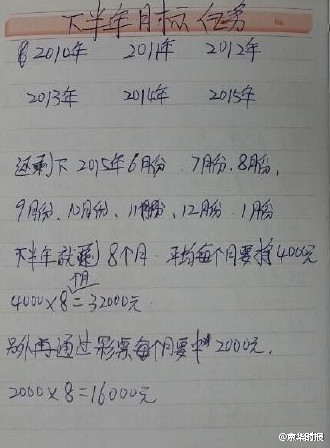 下半年目标任务
2010年 2011年 2012年
2013年 2014年 2015年
还剩下2015年6月份、7月份、8月份、
9月份、10月份、11月份、12月份、1月份
下半年就剩8个月 平均每个月要搞4000元
4000×8=32000元
另外再通过彩票每个月要中2000元,
2000×8=16000元
@京华时报